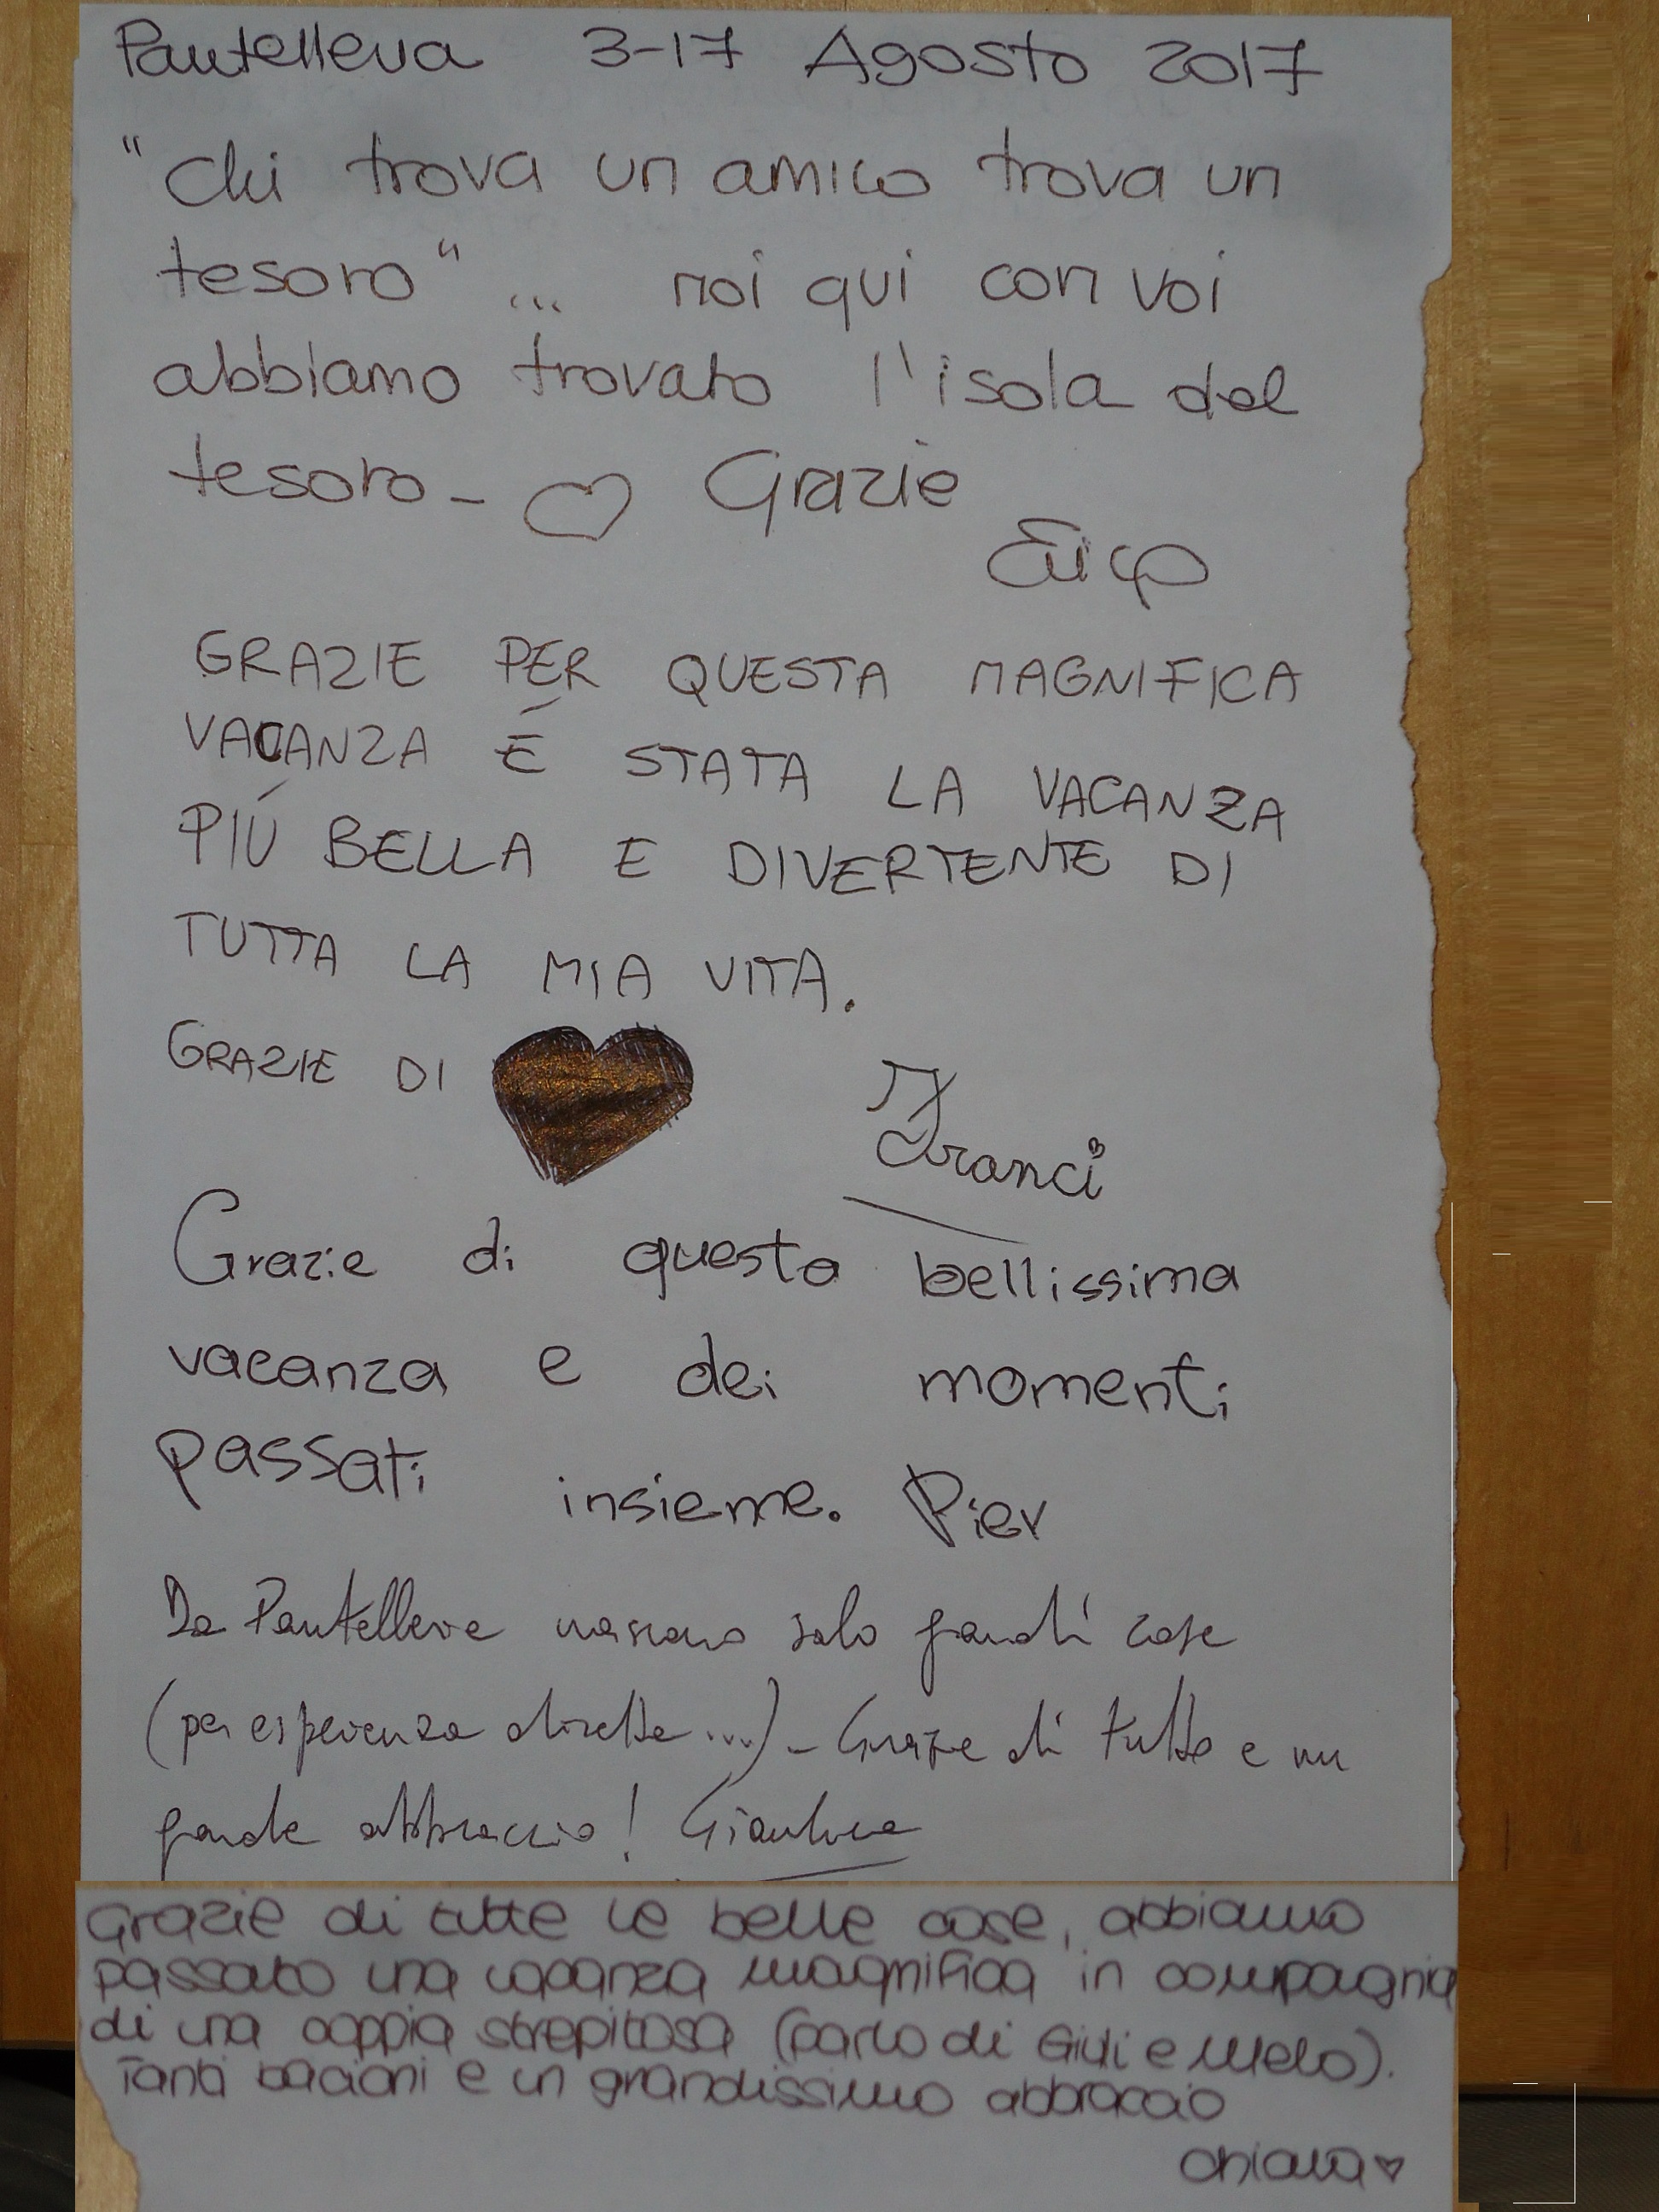 Pantelleria 3-17 Agosto 2017
"Chi trova un amico trova un
tesoro" ... noi qui con voi
abbiamo trovato l'isola del
tesoro - ♡ Grazie
GRAZIE PER QUESTA MAGNIFICA
VACANZA É STATA LA VACANZA
PIÚ BELLA E DIVERTENTE DI
TUTTA LA MIA VITA.
GRAZIE DI
Franci
Grazie di questa bellissima
vacanza e dei momenti
passati insieme. Pier
Da Pantelleria nascono solo grandi cose
(per esperienza diretta...) - Grazie di tutto e un
grande abbraccio! Gianluca
Grazie di tutte le belle cose, abbiamo
passato una vacanza magnifica in compagnia
di una coppia strepitosa (parlo di Giuli e Melo).
Tanti bacioni e un grandissimo abbraccio
Chiara ♡